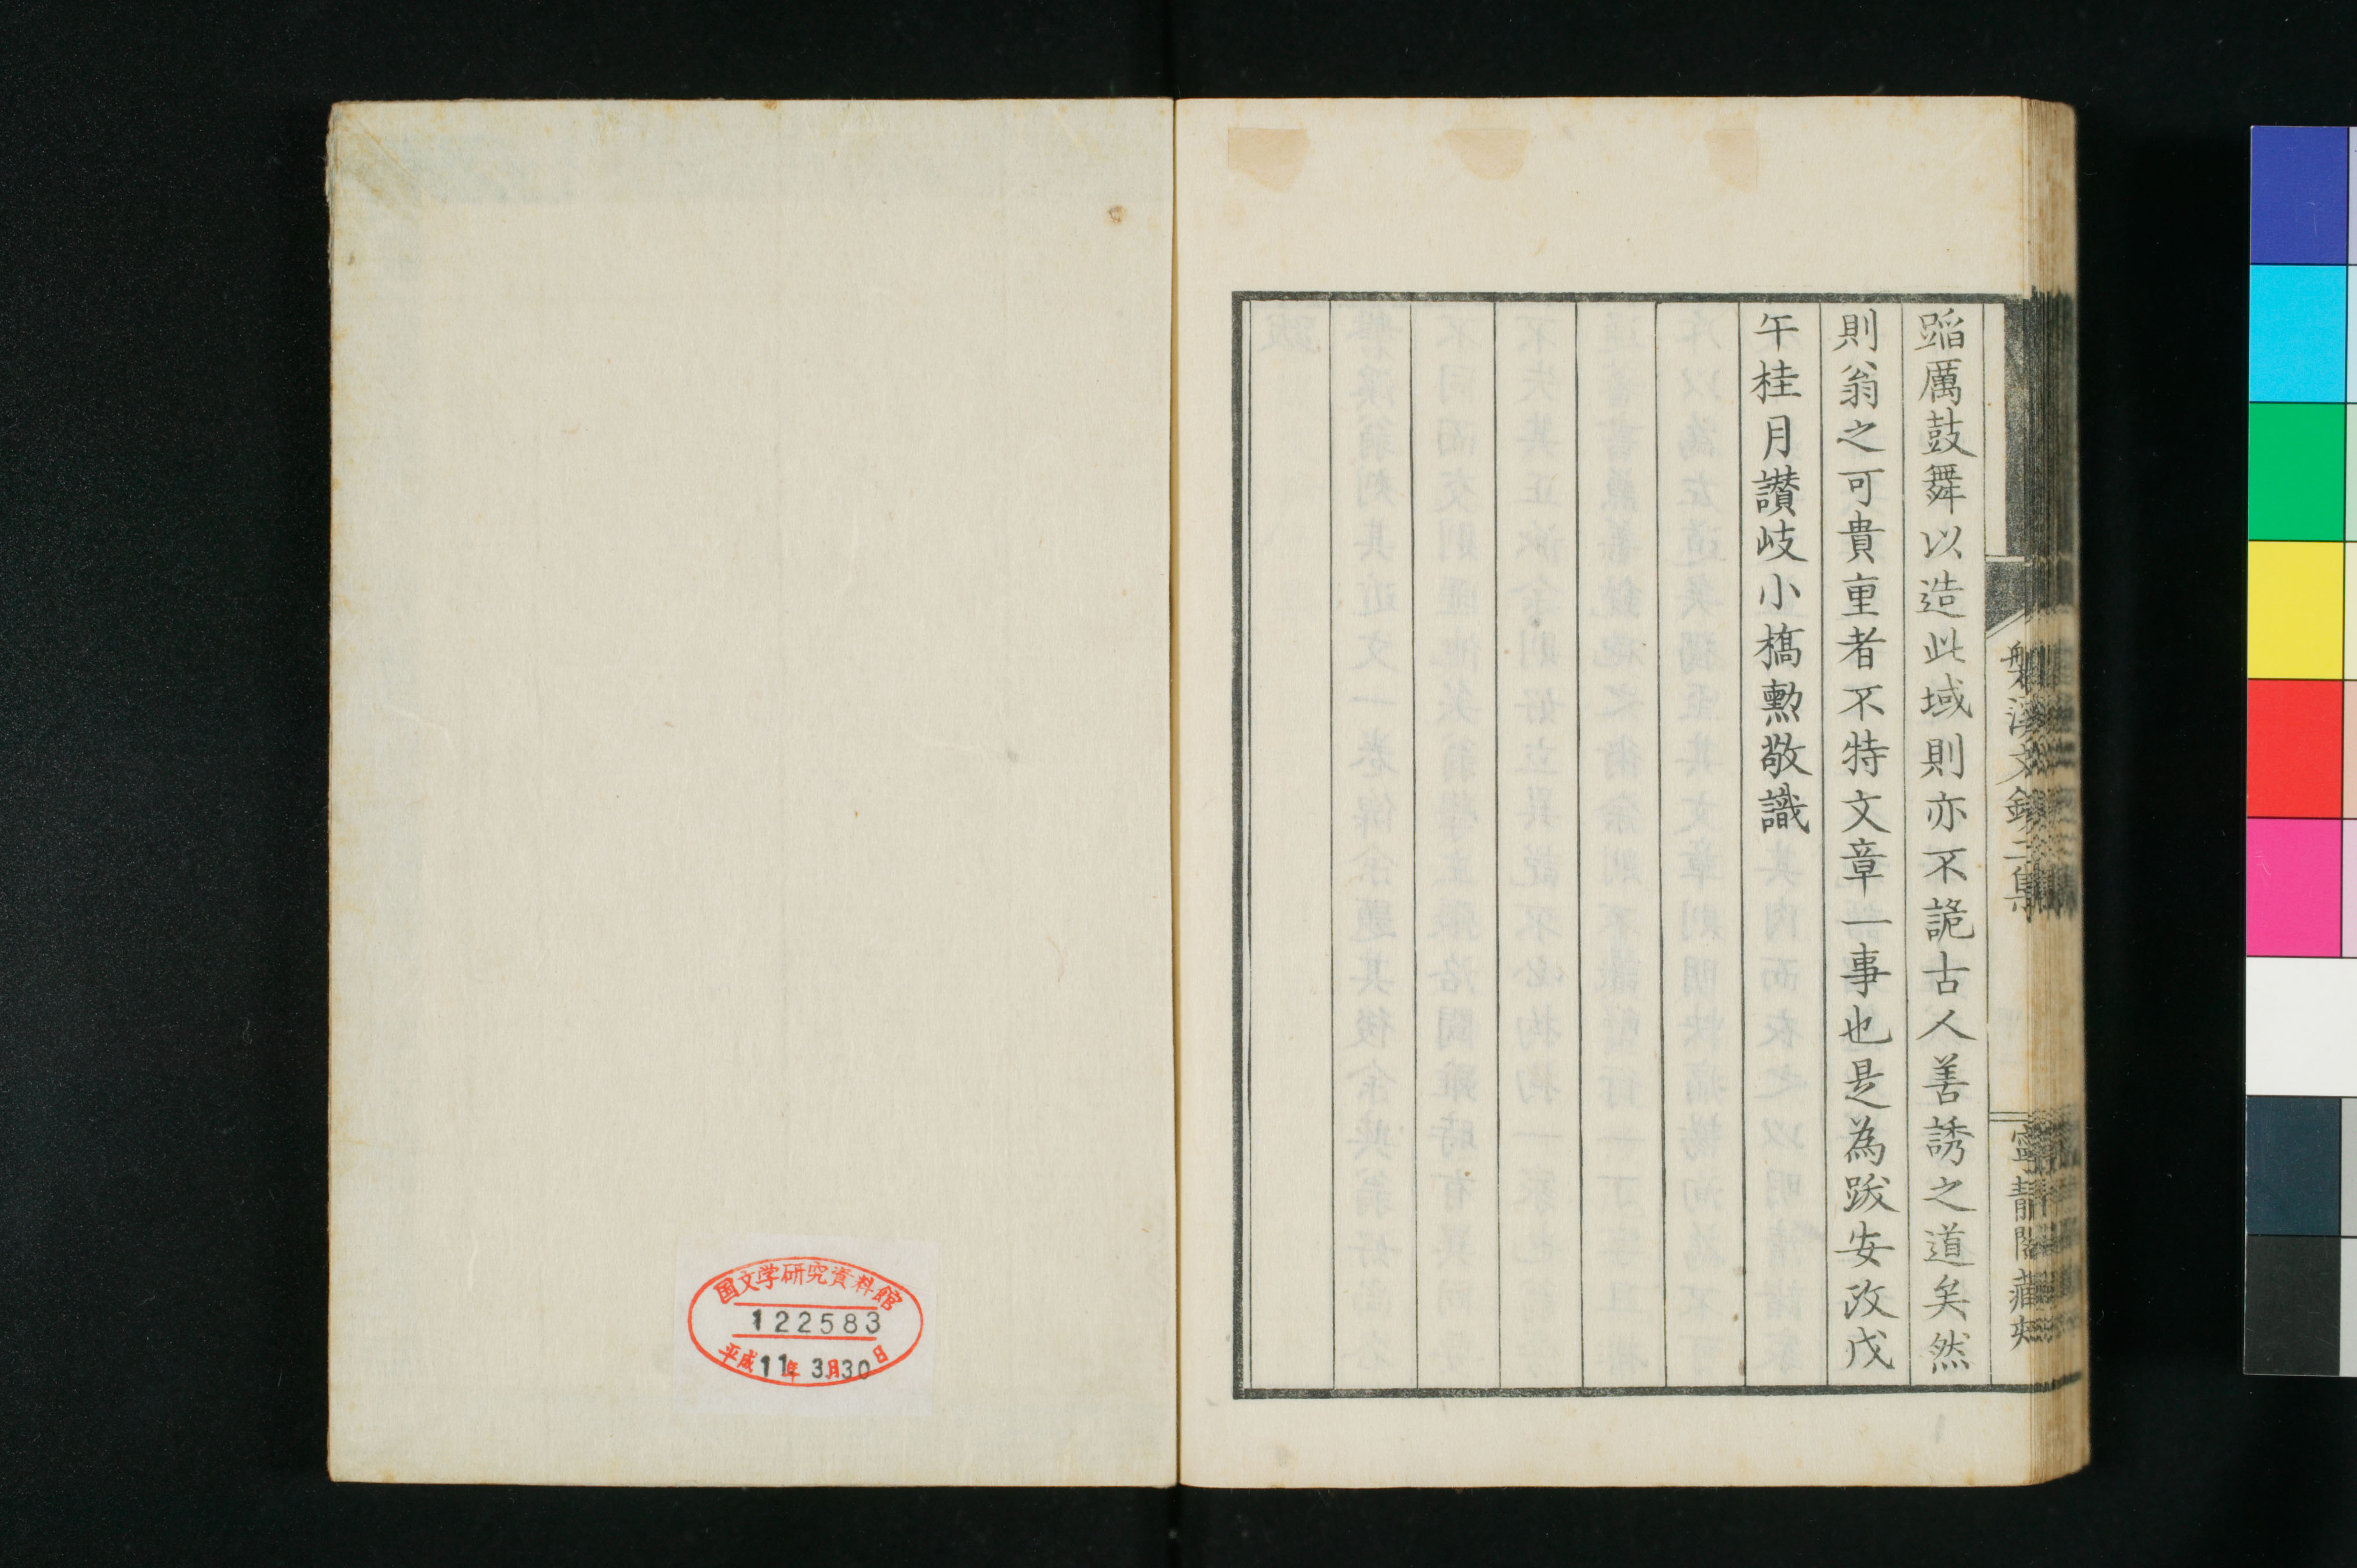 蹈厲鼓舞以造此域則亦不詭古人善誘之道矣然
則翁之可貴重者不特文章一事也是為跋安政戊
午桂月讚岐小橋勲敬識
磐溪文鈔二集
寧靜閣藏
国文学研究資料館
122583
平成11年3月30日